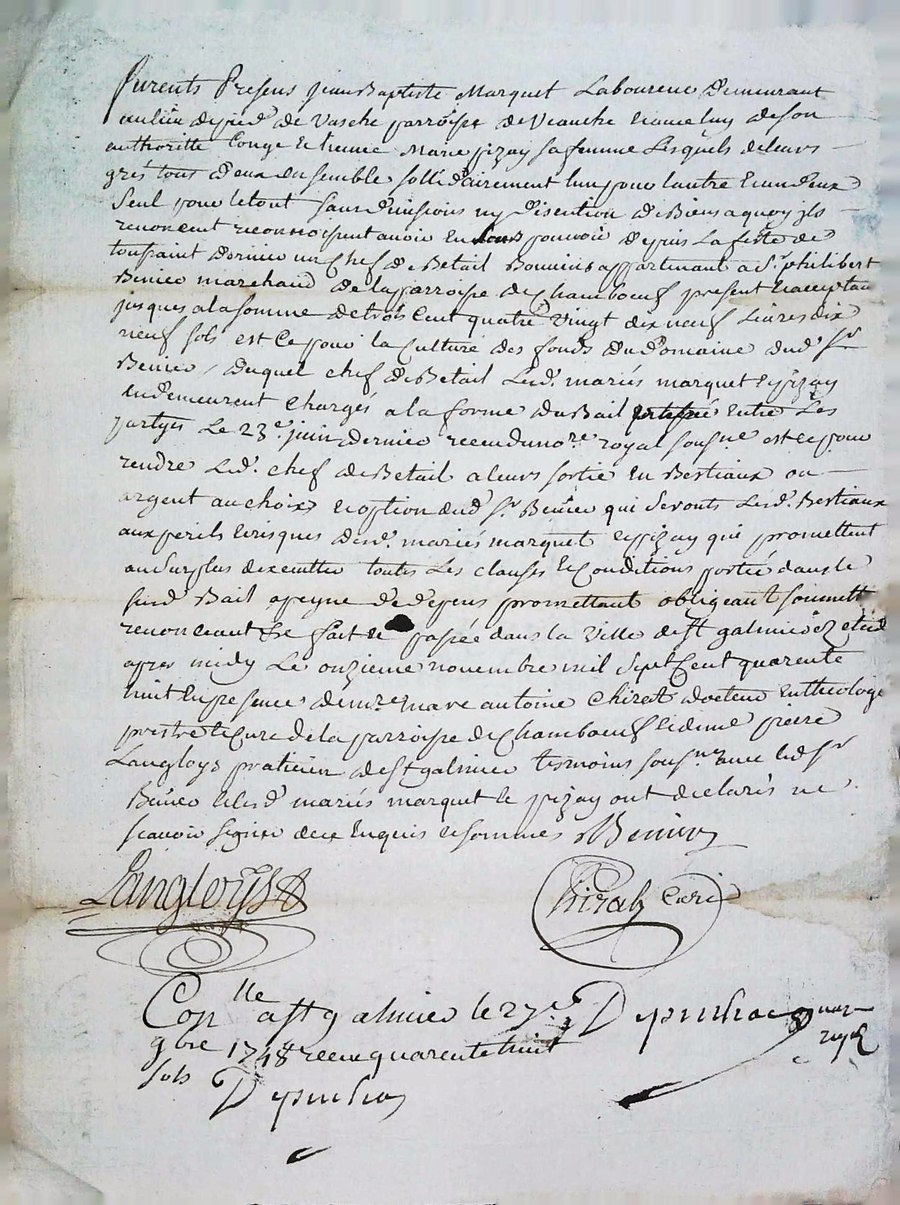 furents Presens Jean Baptiste Marquet Laboureur demeurant
au lieu de pied de Vasche parroisse de Veauche et avec luy de son
authoritte Conge et licence Marie pizay sa femme Lesquels de leurs
grés tous deux ensemble sollidairement lun pour lautre et un deux
Seul pour le tout sans division ny disention de Biens a quoy ils
renoncent reconnoissent avoir en leur pouvoir depuis La feste de
toussaint dernier un Chef de Betail Bouvins appartenant a Sr. philibert
Benier marchand de la parroisse de Chambœuf present et acceptant
jusques a la somme de trois Cent quatre Vingt dix neuf Livres dix
neuf sols est Ce pour la Culture des fonds du domaine dud. Sr
Benier, duquel chef de Betail Led. mariés marquet et pizay
en demeurent Chargés a la forme du Bail entre Les
partyes Le 23e. juin dernier receu du nore. royal sousne. est ce pour
rendre Led. chef de Betail a leurs sortie en Bestiaux ou
argent au choix et option dud. Sr. Benier qui seronts Lesd. Bestiaux
aux perils et risques desd. mariés marquet et pizay qui promettent
au Surplus dexeutter toutes Les clauses et Conditions portée dans le
susd. Bail a peyne de depens promettant obligeant soumett.
renonceant &c fait et passée dans la Ville de St galmier
apres midy Le onzieme novembre mil Sept Cent quarente
huit en presence de mre. marc antoine Chirat docteur en theologie
prestre et Cure de la parroisse de Chambœuf et de me. pierre
Langloys praticien de St galmier tesmoins sousnes. avec led. Sr
Benier et lesd. mariés marquet et pizay ont declarés ne
scavoir signer de ce enquis et sommes Benier
Langloys
Chirat Curé
Conlle a St galmier le 27e.
9bre 1748 receu quarente huit
sols
royal